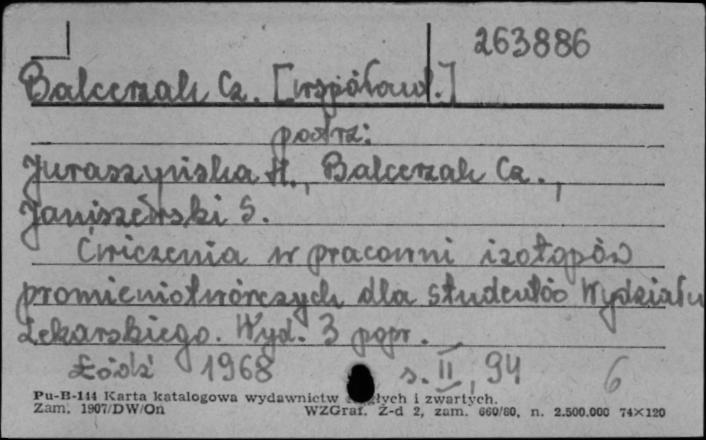 263886
Balcerzak Cz. [współaut.]
patrz:
Juraszyńska H., Balcerzak Cz.,
Janiszewski S.
Ćwiczenia w pracowni izotopów
promieniotwórczych dla studentów Wydziału
Lekarskiego. Wyd. 3 popr.
Łódź 1968 s. II, 94 6
Pu-B-144 Karta katalogowa wydawnictw i zwartych.
Zam. 1907/DW/On WZGraf. Z-d 2, zam. 660/80, n. 2.500.000 74×120